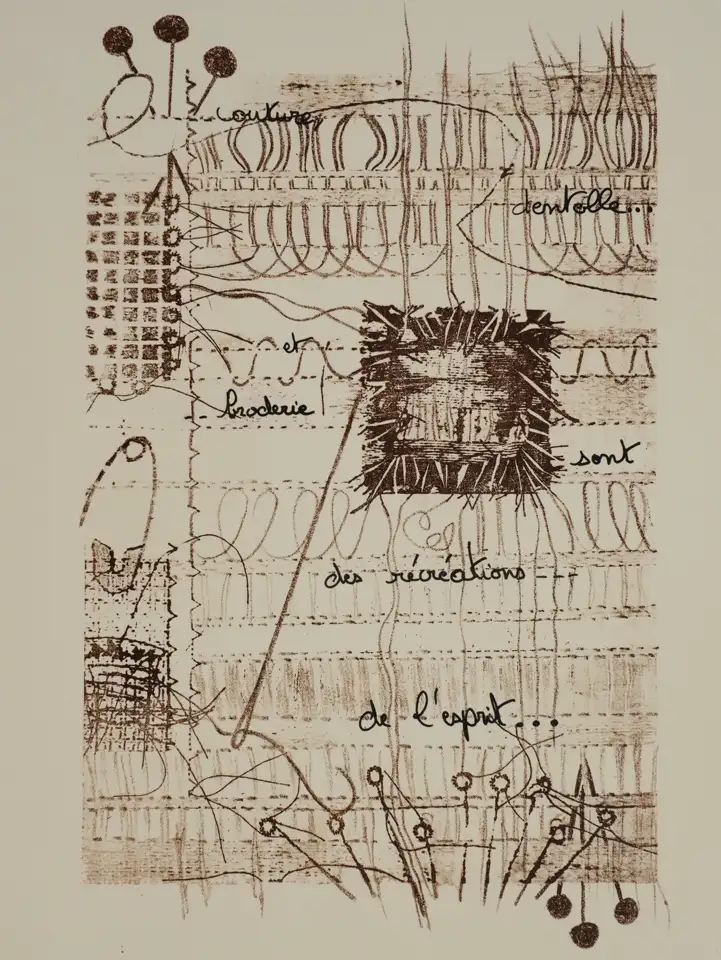 couture,
dentelle...
et
broderie
sont
des récréations ---
de l'esprit...